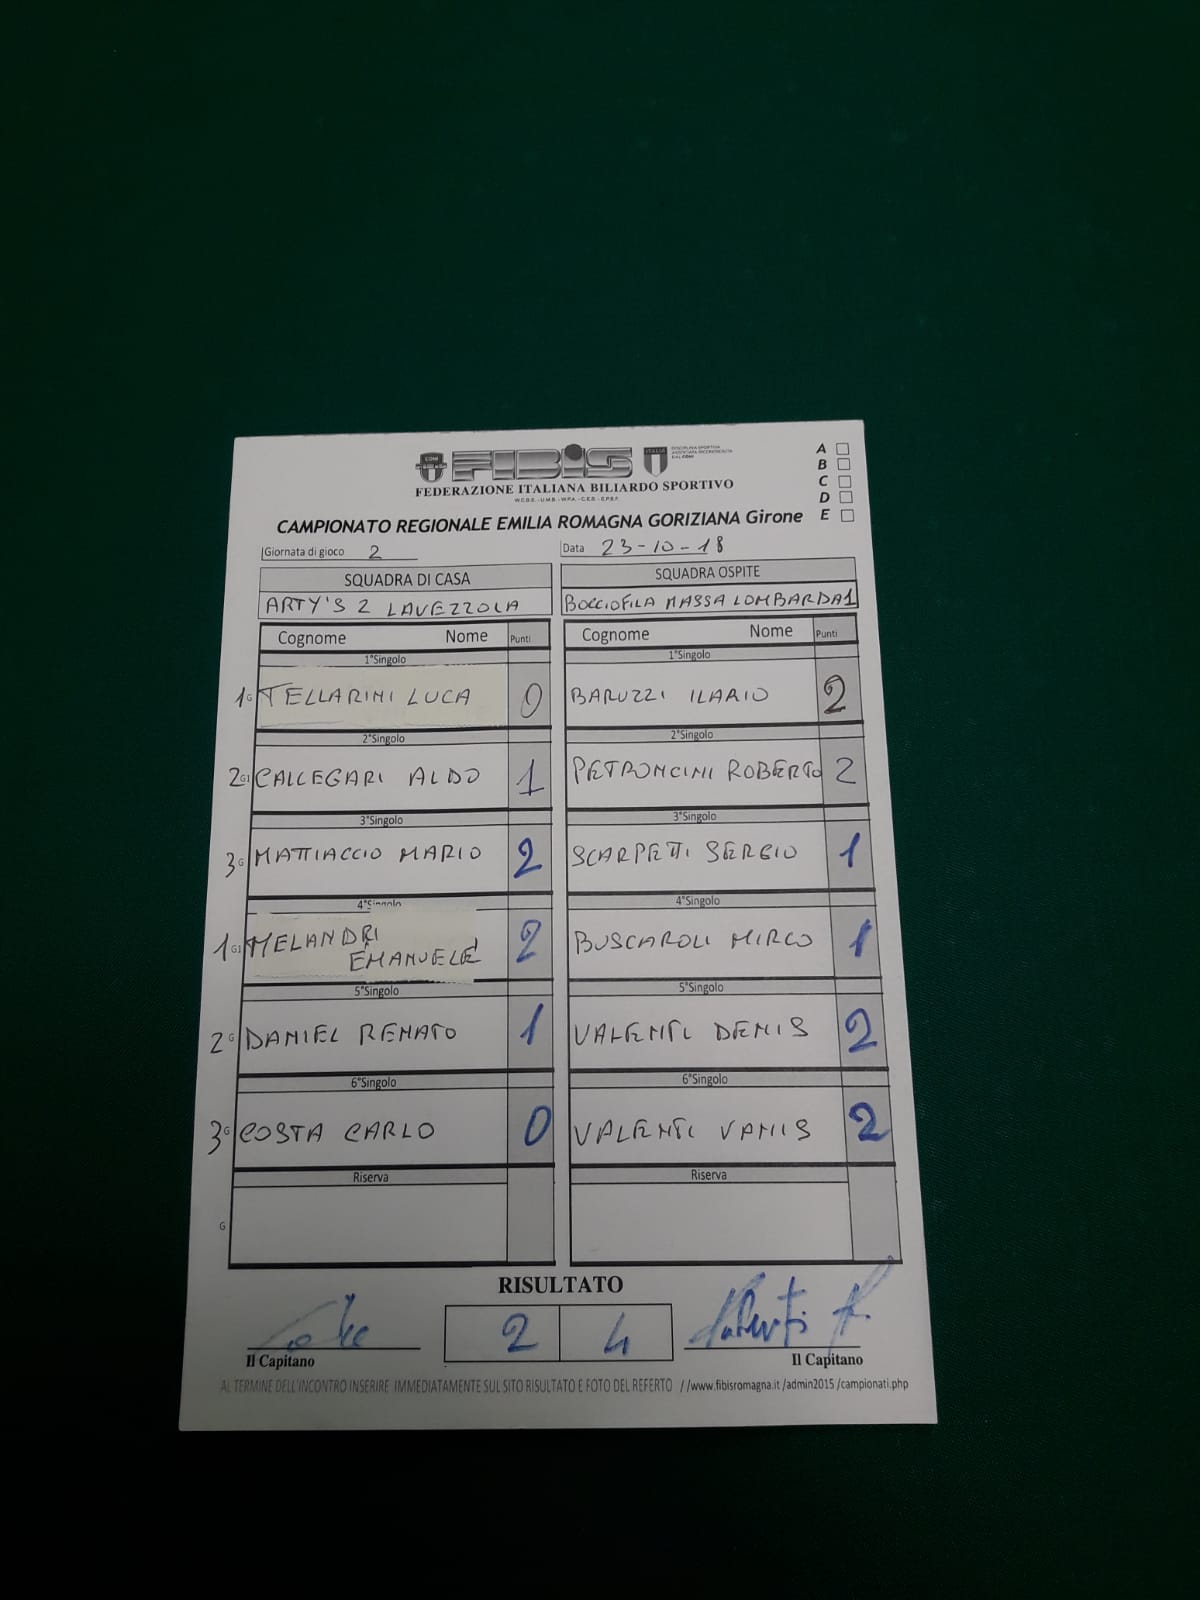 FIBIS
FEDERAZIONE ITALIANA BILIARDO SPORTIVO
W.C.B.S. - U.M.B. - W.P.A. - C.E.B. - E.P.B.F.
CONI
ITALIA
DISCIPLINA SPORTIVA
ASSOCIATA RICONOSCIUTA
DAL CONI
A
B
C
D
E
CAMPIONATO REGIONALE EMILIA ROMAGNA GORIZIANA Girone
Giornata di gioco 2
Data 23-10-18
SQUADRA DI CASA
SQUADRA OSPITE
ARTY'S 2 LAVEZZOLA
BOCCIOFILA MASSA LOMBARDA1
Cognome Nome Punti
Cognome Nome Punti
1°Singolo
1°Singolo
1G TELLARINI LUCA 0
BARUZZI ILARIO 2
2°Singolo
2°Singolo
2G1 CALLEGARI ALDO 1
PETRONCINI ROBERTO 2
3°Singolo
3°Singolo
3G MATTIACCIO MARIO 2
SCARPETTI SERGIO 1
4°Singolo
4°Singolo
1G1 MELANDRI
EMANUELE 2
BUSCAROLI MIRCO 1
5°Singolo
5°Singolo
2G DANIEL RENATO 1
VALENTI DENIS 2
6°Singolo
6°Singolo
3G COSTA CARLO 0
VALENTI VANIS 2
Riserva
Riserva
G
RISULTATO
2 4
Il Capitano
Il Capitano
AL TERMINE DELL'INCONTRO INSERIRE IMMEDIATAMENTE SUL SITO RISULTATO E FOTO DEL REFERTO //www.fibisromagna.it /admin2015 /campionati.php